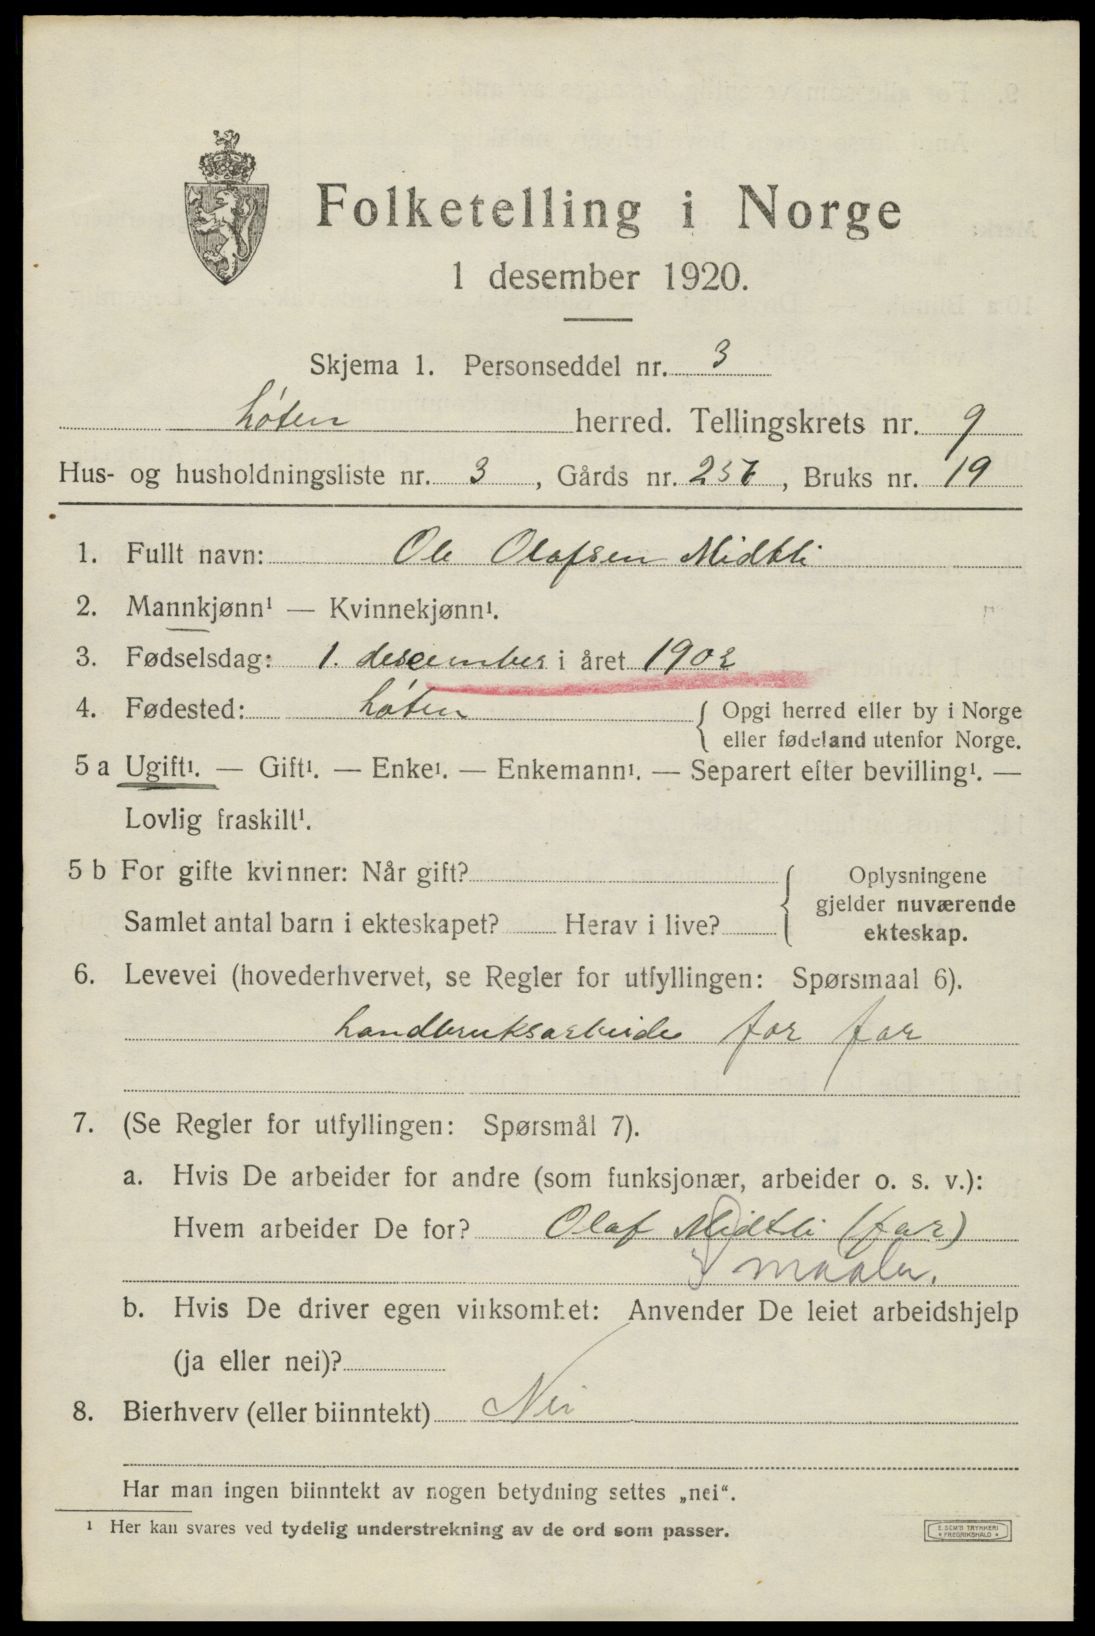 Folketelling i Norge
1 desember 1920.
Skjema 1. Personseddel nr. 3
Løten herred. Tellingskrets nr. 9
Hus- og husholdningsliste nr. 3, Gårds nr. 257, Bruks nr. 19
1. Fullt navn: Ole Olafsen Midtli
2. Mannkjønn¹ — Kvinnekjønn¹.
3. Fødselsdag: 1. desember i året 1902
4. Fødested: Løten { Opgi herred eller by i Norge
eller fødeland utenfor Norge.
5 a Ugift¹. — Gift¹. — Enke¹. — Enkemann¹. — Separert efter bevilling¹. —
Lovlig fraskilt¹.
5 b For gifte kvinner: Når gift? { Oplysningene
gjelder nuværende
ekteskap.
Samlet antal barn i ekteskapet? Herav i live?
6. Levevei (hovederhvervet, se Regler for utfyllingen: Spørsmaal 6).
Landbruksarbeide for far
7. (Se Regler for utfyllingen: Spørsmål 7).
a. Hvis De arbeider for andre (som funksjonær, arbeider o. s. v.):
Hvem arbeider De for? Olaf Midtli (far)
maaler.
b. Hvis De driver egen virksomhet: Anvender De leiet arbeidshjelp
(ja eller nei)?
8. Bierhverv (eller biinntekt) Nei
Har man ingen biinntekt av nogen betydning settes „nei“.
¹ Her kan svares ved tydelig understrekning av de ord som passer.
E. SEM'S TRYKKERI
* FREDRIKSHALD *